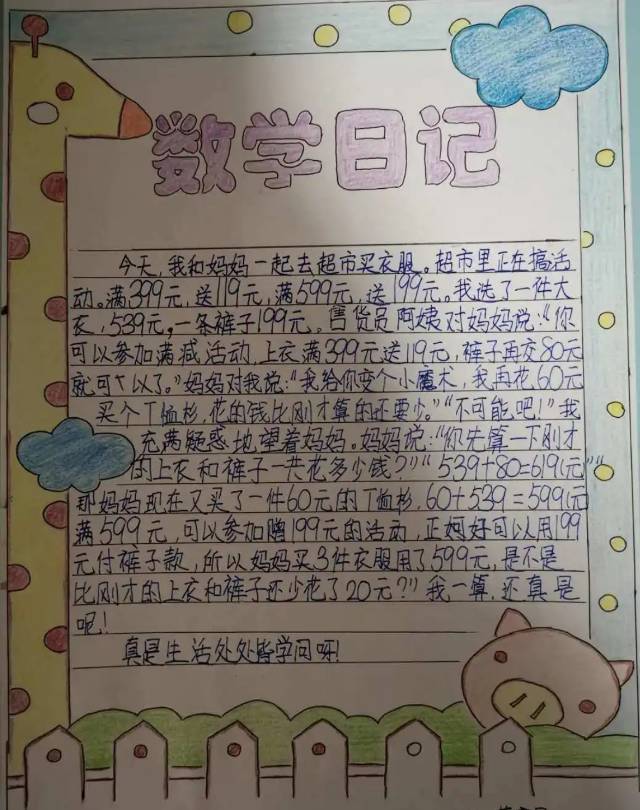 数学日记
今天,我和妈妈一起去超市买衣服。超市里正在搞活
动。满399元,送119元,满599元,送199元。我选了一件大
衣,539元,一条裤子199元。售货员阿姨对妈妈说:“你
可以参加满减活动,上衣满399元送119元,裤子再交80元
就可以了。”妈妈对我说:“我给你变个小魔术,我再花60元
买个T恤衫,花的钱比刚才算的还要少。”“不可能吧!”我
充满疑惑地望着妈妈。妈妈说:“你先算一下刚才
的上衣和裤子一共花多少钱?”“539+80=619(元)”“
那妈妈现在又买了一件60元的T恤衫,60+539=599(元)
满599元,可以参加赠199元的活动,正好可以用199
元付裤子款,所以妈妈买3件衣服用了599元,是不是
比刚才的上衣和裤子还少花了20元?”我一算,还真是
呢!
真是生活处处皆学问呀!